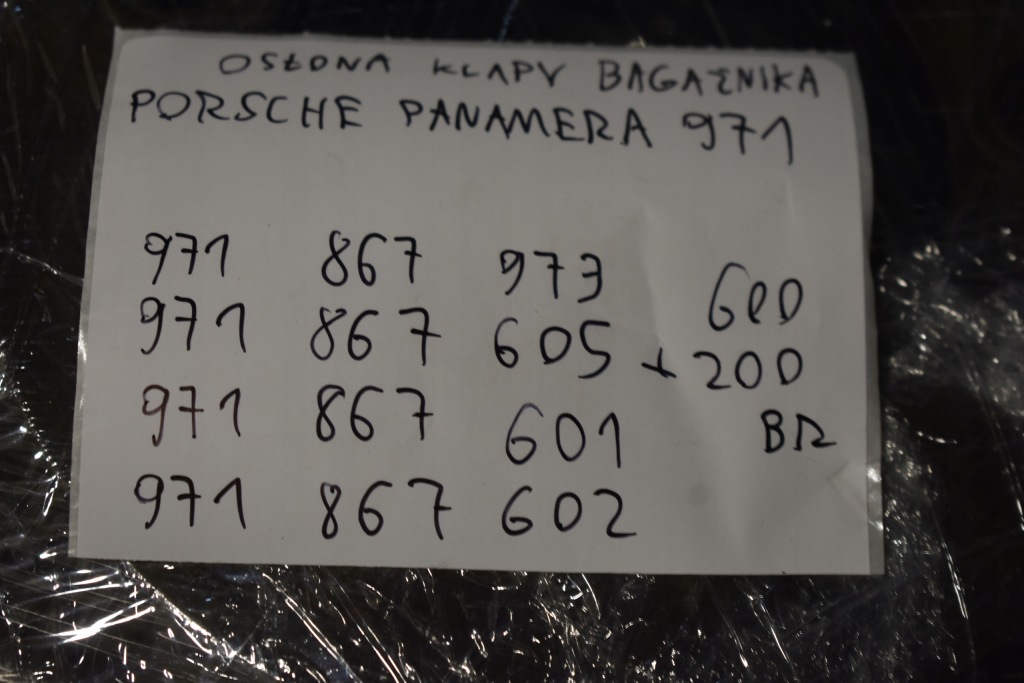 OSŁONA KLAPY BAGAŻNIKA
PORSCHE PANAMERA 971
971 867 973
971 867 605
971 867 601
971 867 602
600
+ 200
BR